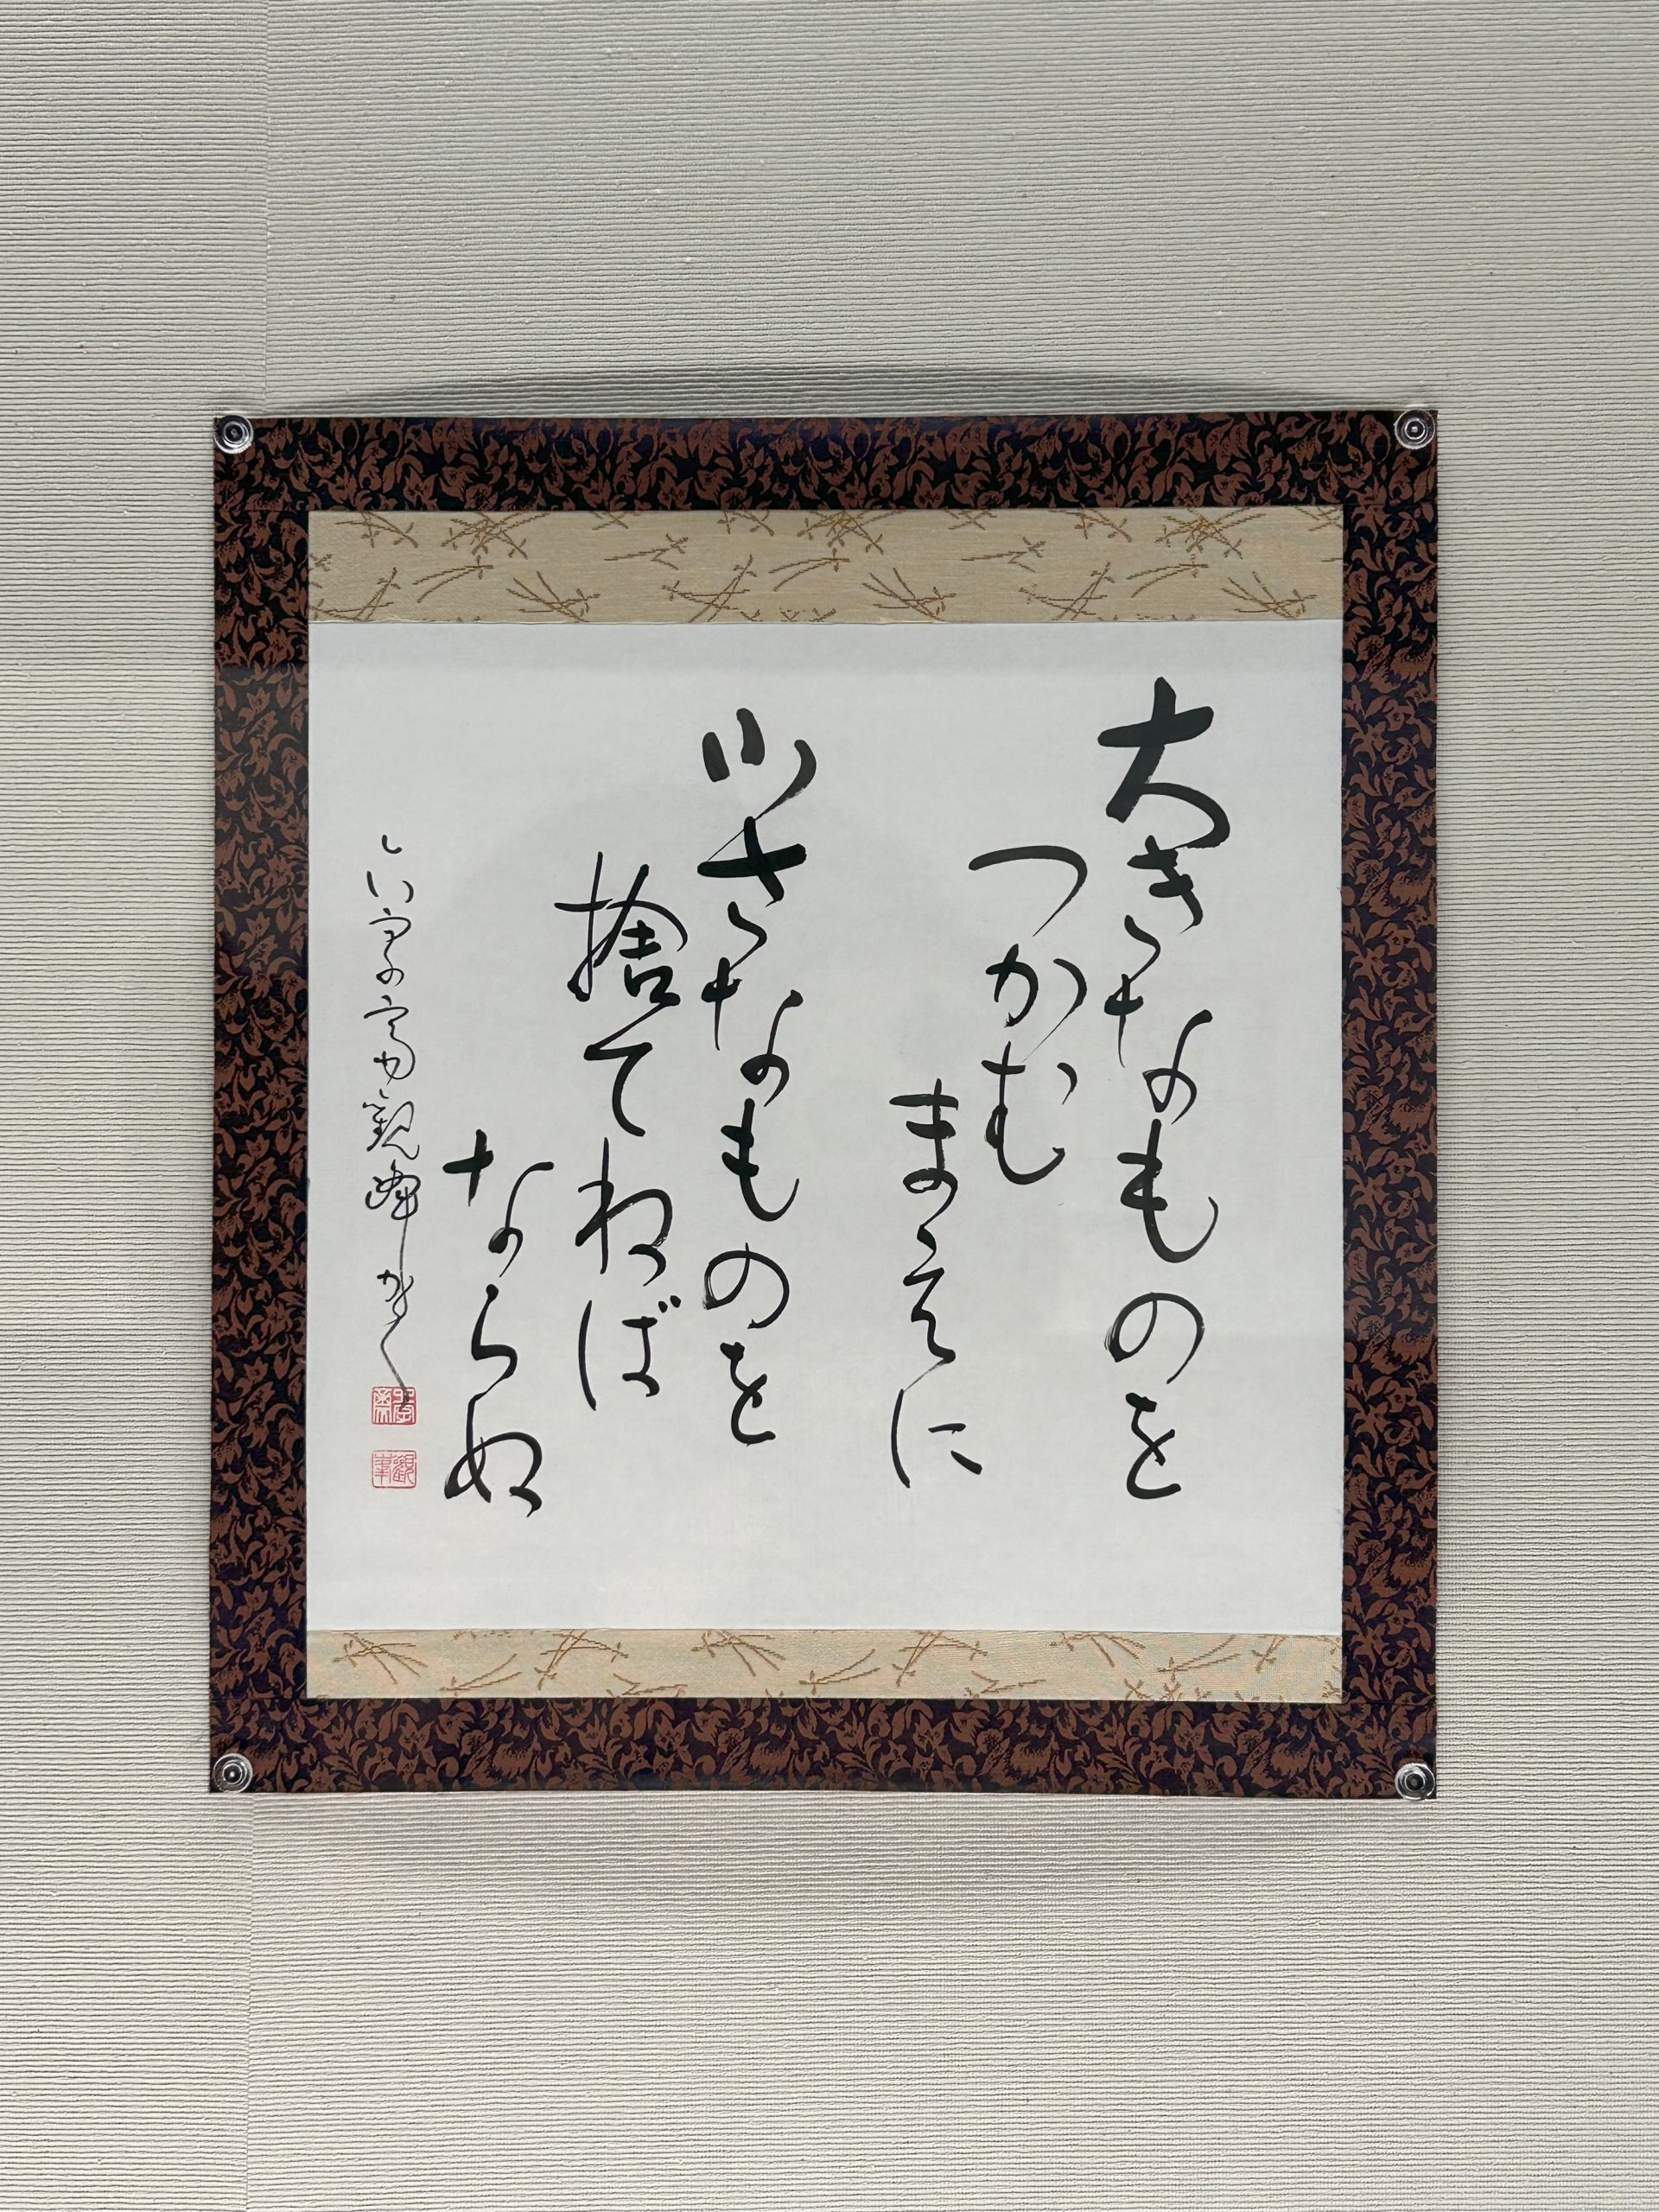 大きなものを
つかむ
まえに
小さなものを
捨てねば
ならぬ
観峰かく